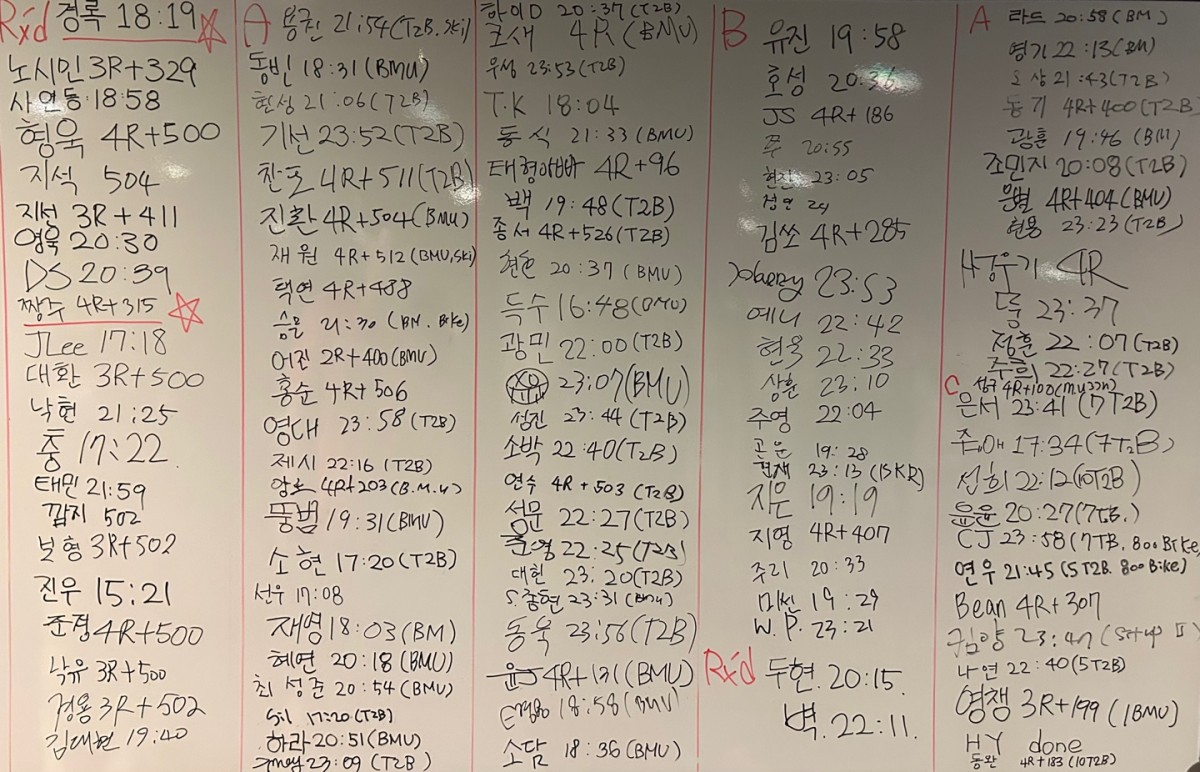 Rx'd 경록 18:19
노시민 3R+329
사연동 18:58
형욱 4R+500
지석 504
지성 3R+411
영욱 20:30
DS 20:39
짱수 4R+315
JLee 17:18
대환 3R+500
낙현 21:25
중 17:22
태민 21:59
깜지 502
보형 3R+502
진우 15:21
준정 4R+500
낙유 3R+500
정용 3R+502
김대현 19:40
A 용진 21:54 (T2B. Ski)
동빈 18:31 (BMU)
현성 21:06 (T2B)
기선 23:52 (T2B)
찬포 4R+511 (T2B)
진환 4R+504 (BMU)
재원 4R+512 (BMU, Ski)
택연 4R+488
승문 21:30 (BM. Bike)
어진 2R+400 (BMU)
홍순 4R+506
영대 23:58 (T2B)
제시 22:16 (T2B)
4R+203 (B.M.U)
뚱범 19:31 (BMU)
소현 17:20 (T2B)
선우 17:08
재영 18:03 (BM)
혜면 20:18 (BMU)
최성준 20:54 (BMU)
Sil 17:20 (T2B)
하라 20:51 (BMU)
23:09 (T2B)
하이D 20:37 (T2B)
4R (BMU)
우성 23:53 (T2B)
T.K 18:04
동식 21:33 (BMU)
태형아빠 4R+96
백 19:48 (T2B)
종서 4R+526 (T2B)
20:37 (BMU)
득수 16:48 (BMU)
광민 22:00 (T2B)
23:07 (BMU)
성진 23:44 (T2B)
소박 22:40 (T2B)
연수 4R+503 (T2B)
성문 22:27 (T2B)
준영 22:25 (T2B)
대헌 23:20 (T2B)
S.중현 23:31 (BMU)
동욱 23:56 (T2B)
윤J 4R+131 (BMU)
18:58 (BMU)
소담 18:36 (BMU)
B 유진 19:58
호성 20:36
JS 4R+186
쭈 20:55
23:05
정연 24
김쏘 4R+285
23:53
예니 22:42
현욱 22:33
상훈 23:10
주영 22:04
곤운 19:28
23:13 (15KR)
지은 19:19
지영 4R+407
주리 20:33
미씬 19:29
W.P. 23:21
Rx'd 두현. 20:15.
벽. 22:11.
A 라드 20:58 (BM)
명기 22:13 (BM)
21:43 (T2B)
동기 4R+400 (T2B)
광훈 19:46 (BM)
조민지 20:08 (T2B)
은별 4R+404 (BMU)
현용 23:23 (T2B)
4R
룽 23:37
정훈 22:07 (T2B)
주희 22:27 (T2B)
C 성규 4R+100
은서 23:41 (7T2B)
17:34 (7T2B)
선희 22:12 (10T2B)
윤윤 20:27 (7TB.)
CJ 23:58 (7TB. 800 Bike)
연우 21:45 (5T2B. 800 Bike)
Bean 4R+307
김양 23:47
나연 22:40 (5T2B)
영쟁 3R+199 (1BMU)
HY done
동완 4R+183 (10T2B)